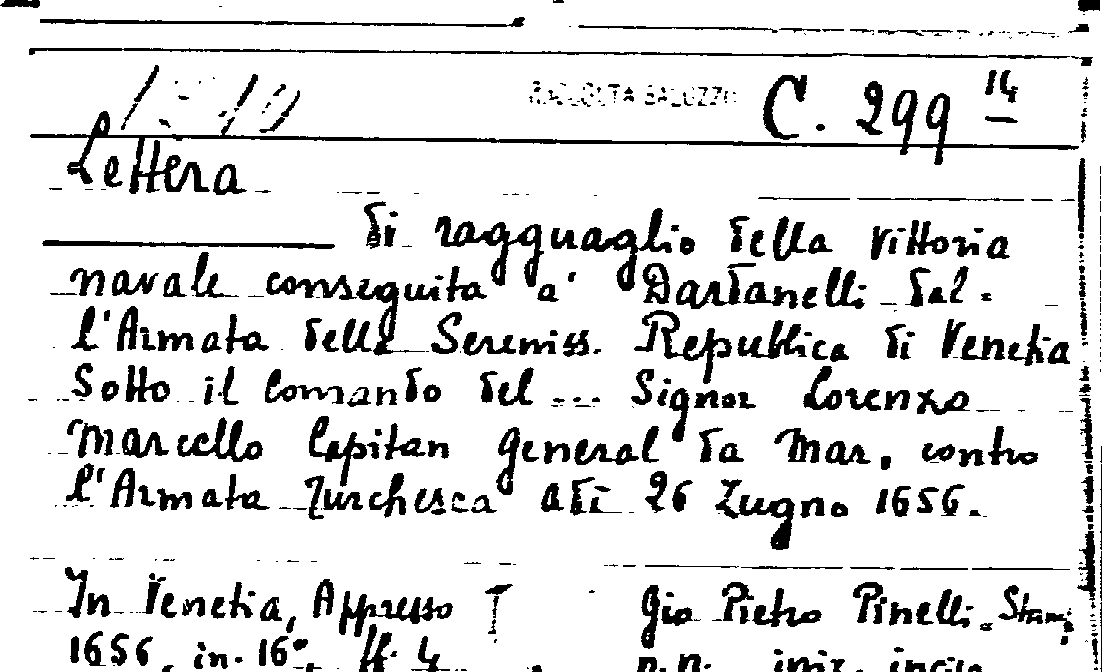 RACCOLTA SALUZZO C. 299 14
Lettera
di ragguaglio della Vittoria
navale conseguita a' Dardanelli dal-
l'Armata della Sereniss. Republica di Venetia
Sotto il Comando del ... Signor Lorenzo
Marcello Capitan General da Mar, contro
l'Armata Turchesca adi 26 Zugno 1656.
In Venetia, Appresso Gio Pietro Pinelli. Stam:
1656, in-16°, ff. 4 n.n. iniz. incise